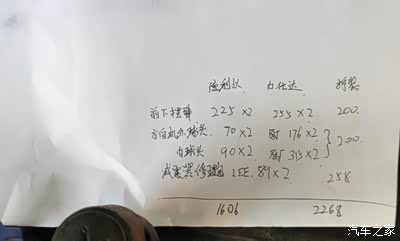 拆装
前下摆臂 225×2 255×2 200.
方向机外球头 70×2 176×2 200.
内球头 90×2 315×2
减震器修理包 LEE. 89×2 258
1606 2268
汽车之家